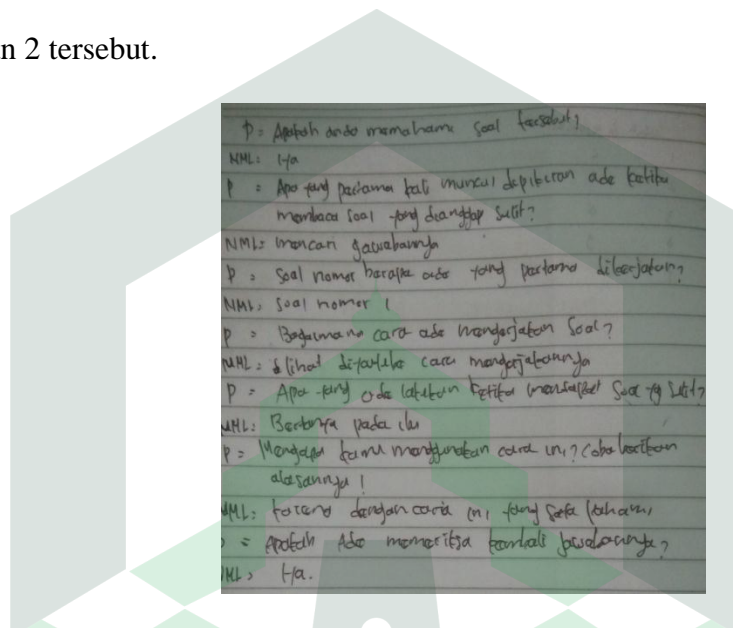 n 2 tersebut.
P = Apakah anda memahami soal tersebut?
NML: Iya
P = Apa yang pertama kali muncul dipikiran ade ketika
membaca soal yang dianggap sulit?
NML: mencari jawabannya
P = Soal nomer berapa ade yang pertama dikerjakan?
NML: Soal nomer 1
P = Bagaimana cara ade mengerjakan soal?
NML: dilihat cara mengerjakannya
P = Apa yang ade lakukan ketika soal yg sulit?
NML: Bertanya pada ibu
P = Mengapa kamu menggunakan cara ini? Coba berikan
alasannya!
NML: karena dengan cara ini yang saya fahami
P = Apakah Ade memeriksa kembali jawabannya?
NML: Iya.